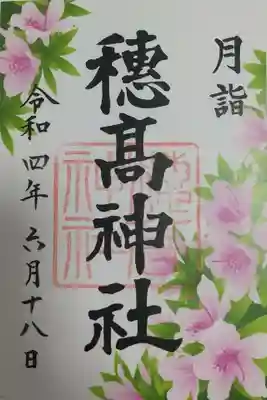 月詣
穗髙神社
令和四年 六月十八日